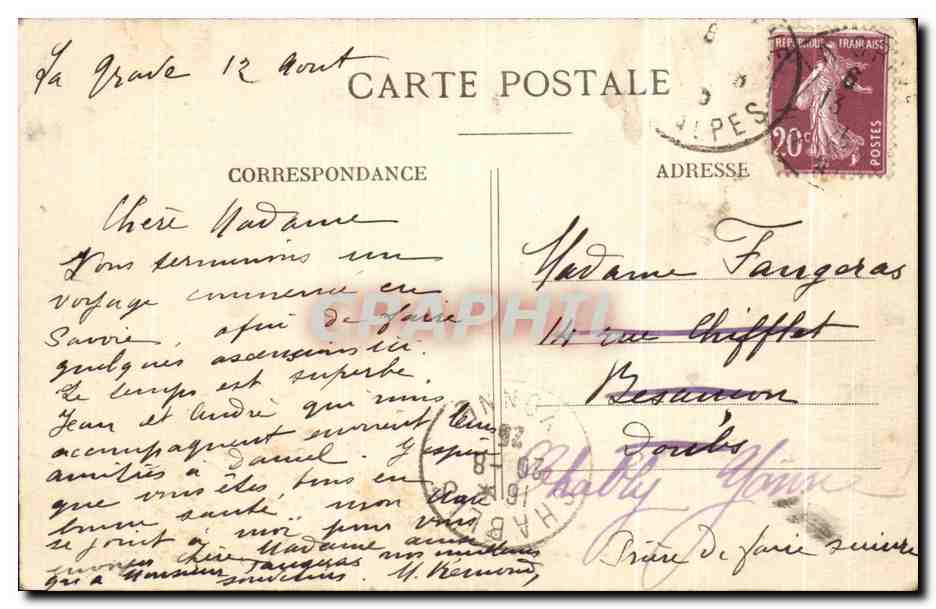 La Grave 12 Aout
CARTE POSTALE
CORRESPONDANCE
ADRESSE
REPUBLIQUE FRANÇAISE
20c
POSTES
ALPES
Chère Madame
Nous terminons un
voyage commencé en
Savoie, afin de faire
quelques ascensions ici.
Le temps est superbe
Jean et André qui nous
accompagnent envoient leurs
amitiés à Daniel. J'espère
que vous êtes tous en
bonne santé, mon mari
se joint à moi pour vous
envoyer chère Madame ainsi
qu'à Monsieur Faugeras nos meilleurs
souvenirs. M. Rémond
Madame Faugeras
14 rue Chifflet
Besançon
Doubs
Chably Yonne
Prière de faire suivre
CHABLIS YONNE
16
20 - 8
23
CPAPHIL